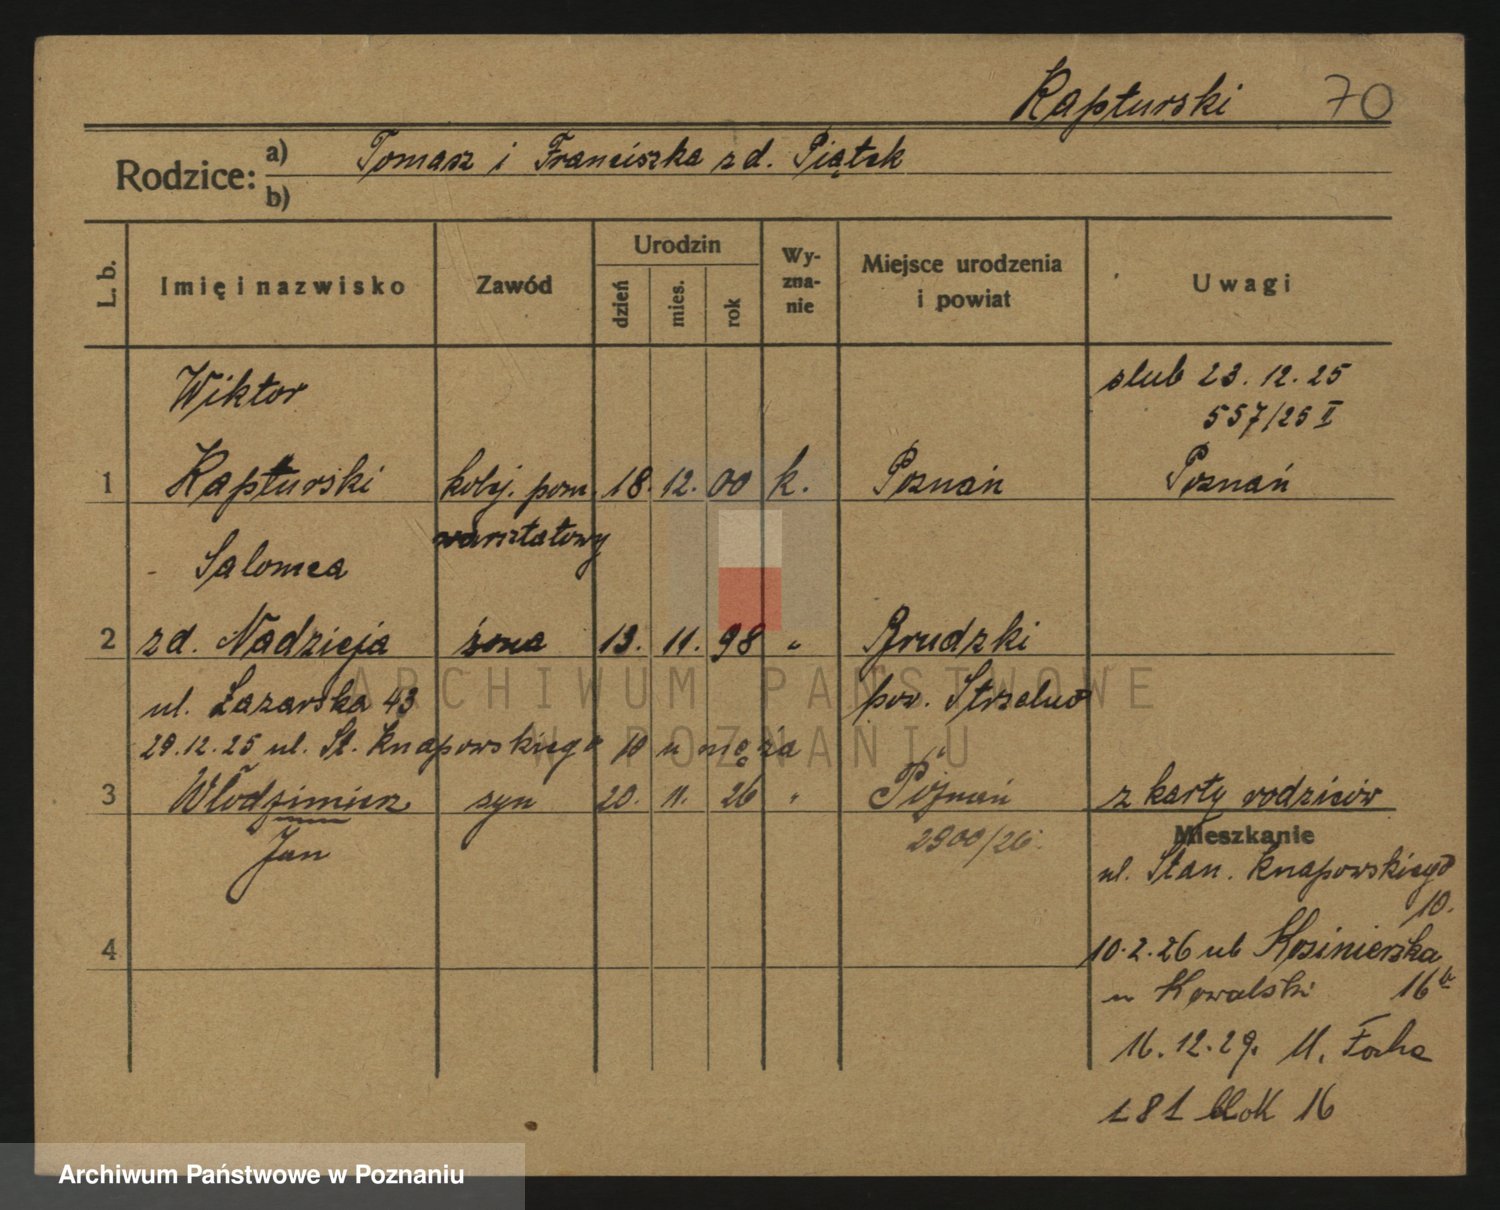 Kapturski 70
Rodzice: a) Tomasz i Franciszka zd. Piątek
b)
L. b. Imię i nazwisko Zawód Urodzin dzień mies. rok Wy-zna-nie Miejsce urodzenia i powiat Uwagi
Wiktor ślub 23. 12. 25
557/25 II
1 Kapturski kolej. pom. 18. 12. 00 k. Poznań Poznań
warsztatowy
Salomea
2 zd. Nadzieja żona 13. 11. 98 " Brudzki
ul. Łazarska 43 pow. Strzelno
29.12.25 ul. St. Knapowskiego 10 u męża
3 Włodzimierz syn 20. 11. 26 " Poznań z karty rodziców
Jan 2900/26.
Mieszkanie
ul. Stan. Knapowskiego
10.
4 10.2.26 ul. Kosinierska
u Kowalski 16
16.12.29. Focha
181 blok 16
ARCHIWUM PAŃSTWOWE
W POZNANIU
Archiwum Państwowe w Poznaniu